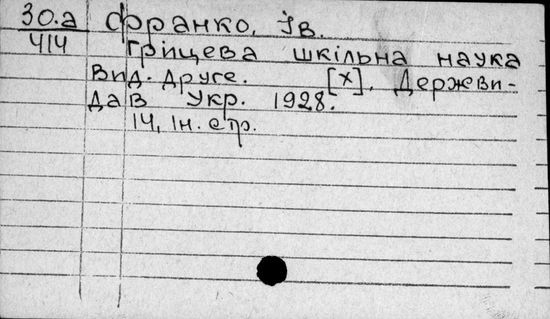 30.а Франко, Ів.
414 Грицева шкільна наука
Вид. друге. [Х]. Держви-
дав Укр. 1928.
14, Ін. стр.